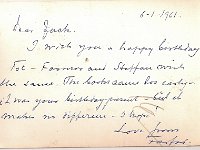 6-1-1961.
Dear Zack.
I wish you a happy birthday
and
the same. The books came too early
it was your birthday present - but it
makes no difference - I hope!
Love from